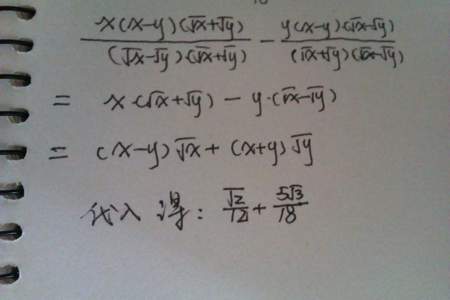 x(x-y)(√x+√y)/(√x-√y)(√x+√y) - y(x-y)(√x-√y)/(√x+√y)(√x-√y)
= x·(√x+√y) - y·(√x-√y)
= (x-y)√x + (x+y)√y
代入得: √2/12 + 5√3/18